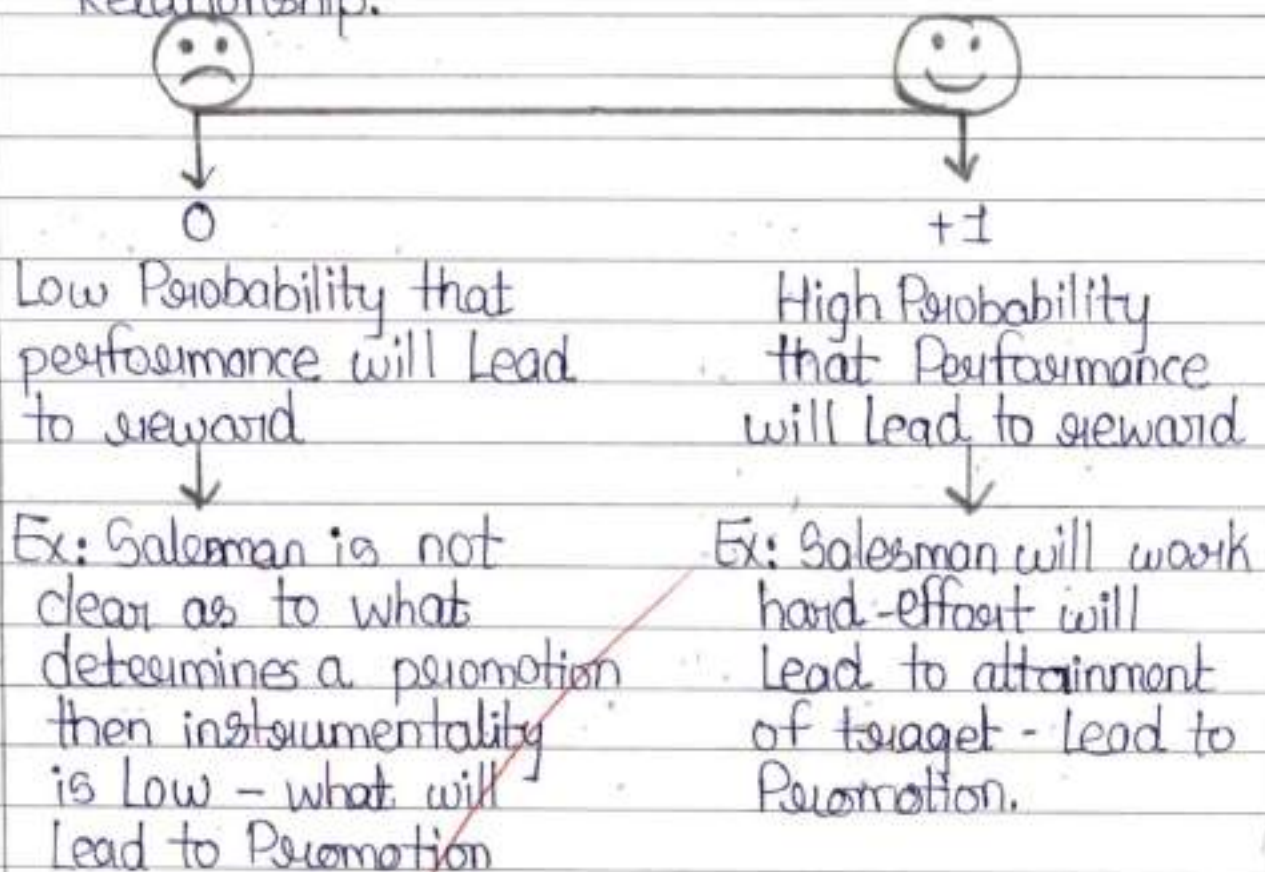 Relationship.
0
Low Probability that
performance will Lead
to reward
Ex: Salesman is not
clear as to what
determines a promotion
then instrumentality
is Low - what will
Lead to Promotion
+1
High Probability
that Performance
will Lead to reward
Ex: Salesman will work
hard-effort will
Lead to attainment
of traget - Lead to
Promotion.